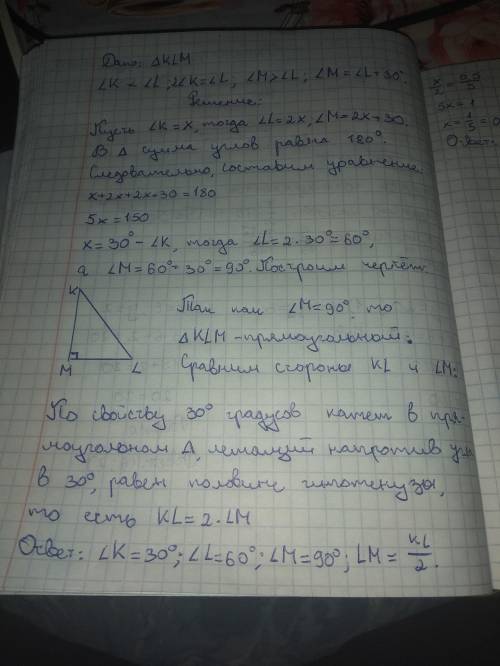 Дано: ΔKLM
∠K < ∠L; 2∠K = ∠L, ∠M > ∠L; ∠M = ∠L + 30°
Решение:
Пусть ∠K = x, тогда ∠L = 2x, ∠M = 2x + 30.
В Δ сумма углов равна 180°.
Следовательно, составим уравнение:
x + 2x + 2x + 30 = 180
5x = 150
x = 30° - ∠K, тогда ∠L = 2 · 30° = 60°,
а ∠M = 60° + 30° = 90°. Построим чертёж:
K
M
L
Так как ∠M = 90°, то
ΔKLM - прямоугольный.
Сравним стороны KL и LM:
По свойству 30° градусов катет в пря-
моугольном Δ, лежащий напротив угла
в 30°, равен половине гипотенузы,
то есть KL = 2 · LM
Ответ: ∠K = 30°; ∠L = 60°; ∠M = 90°; LM = KL/2.
5x = 1
Ответ: